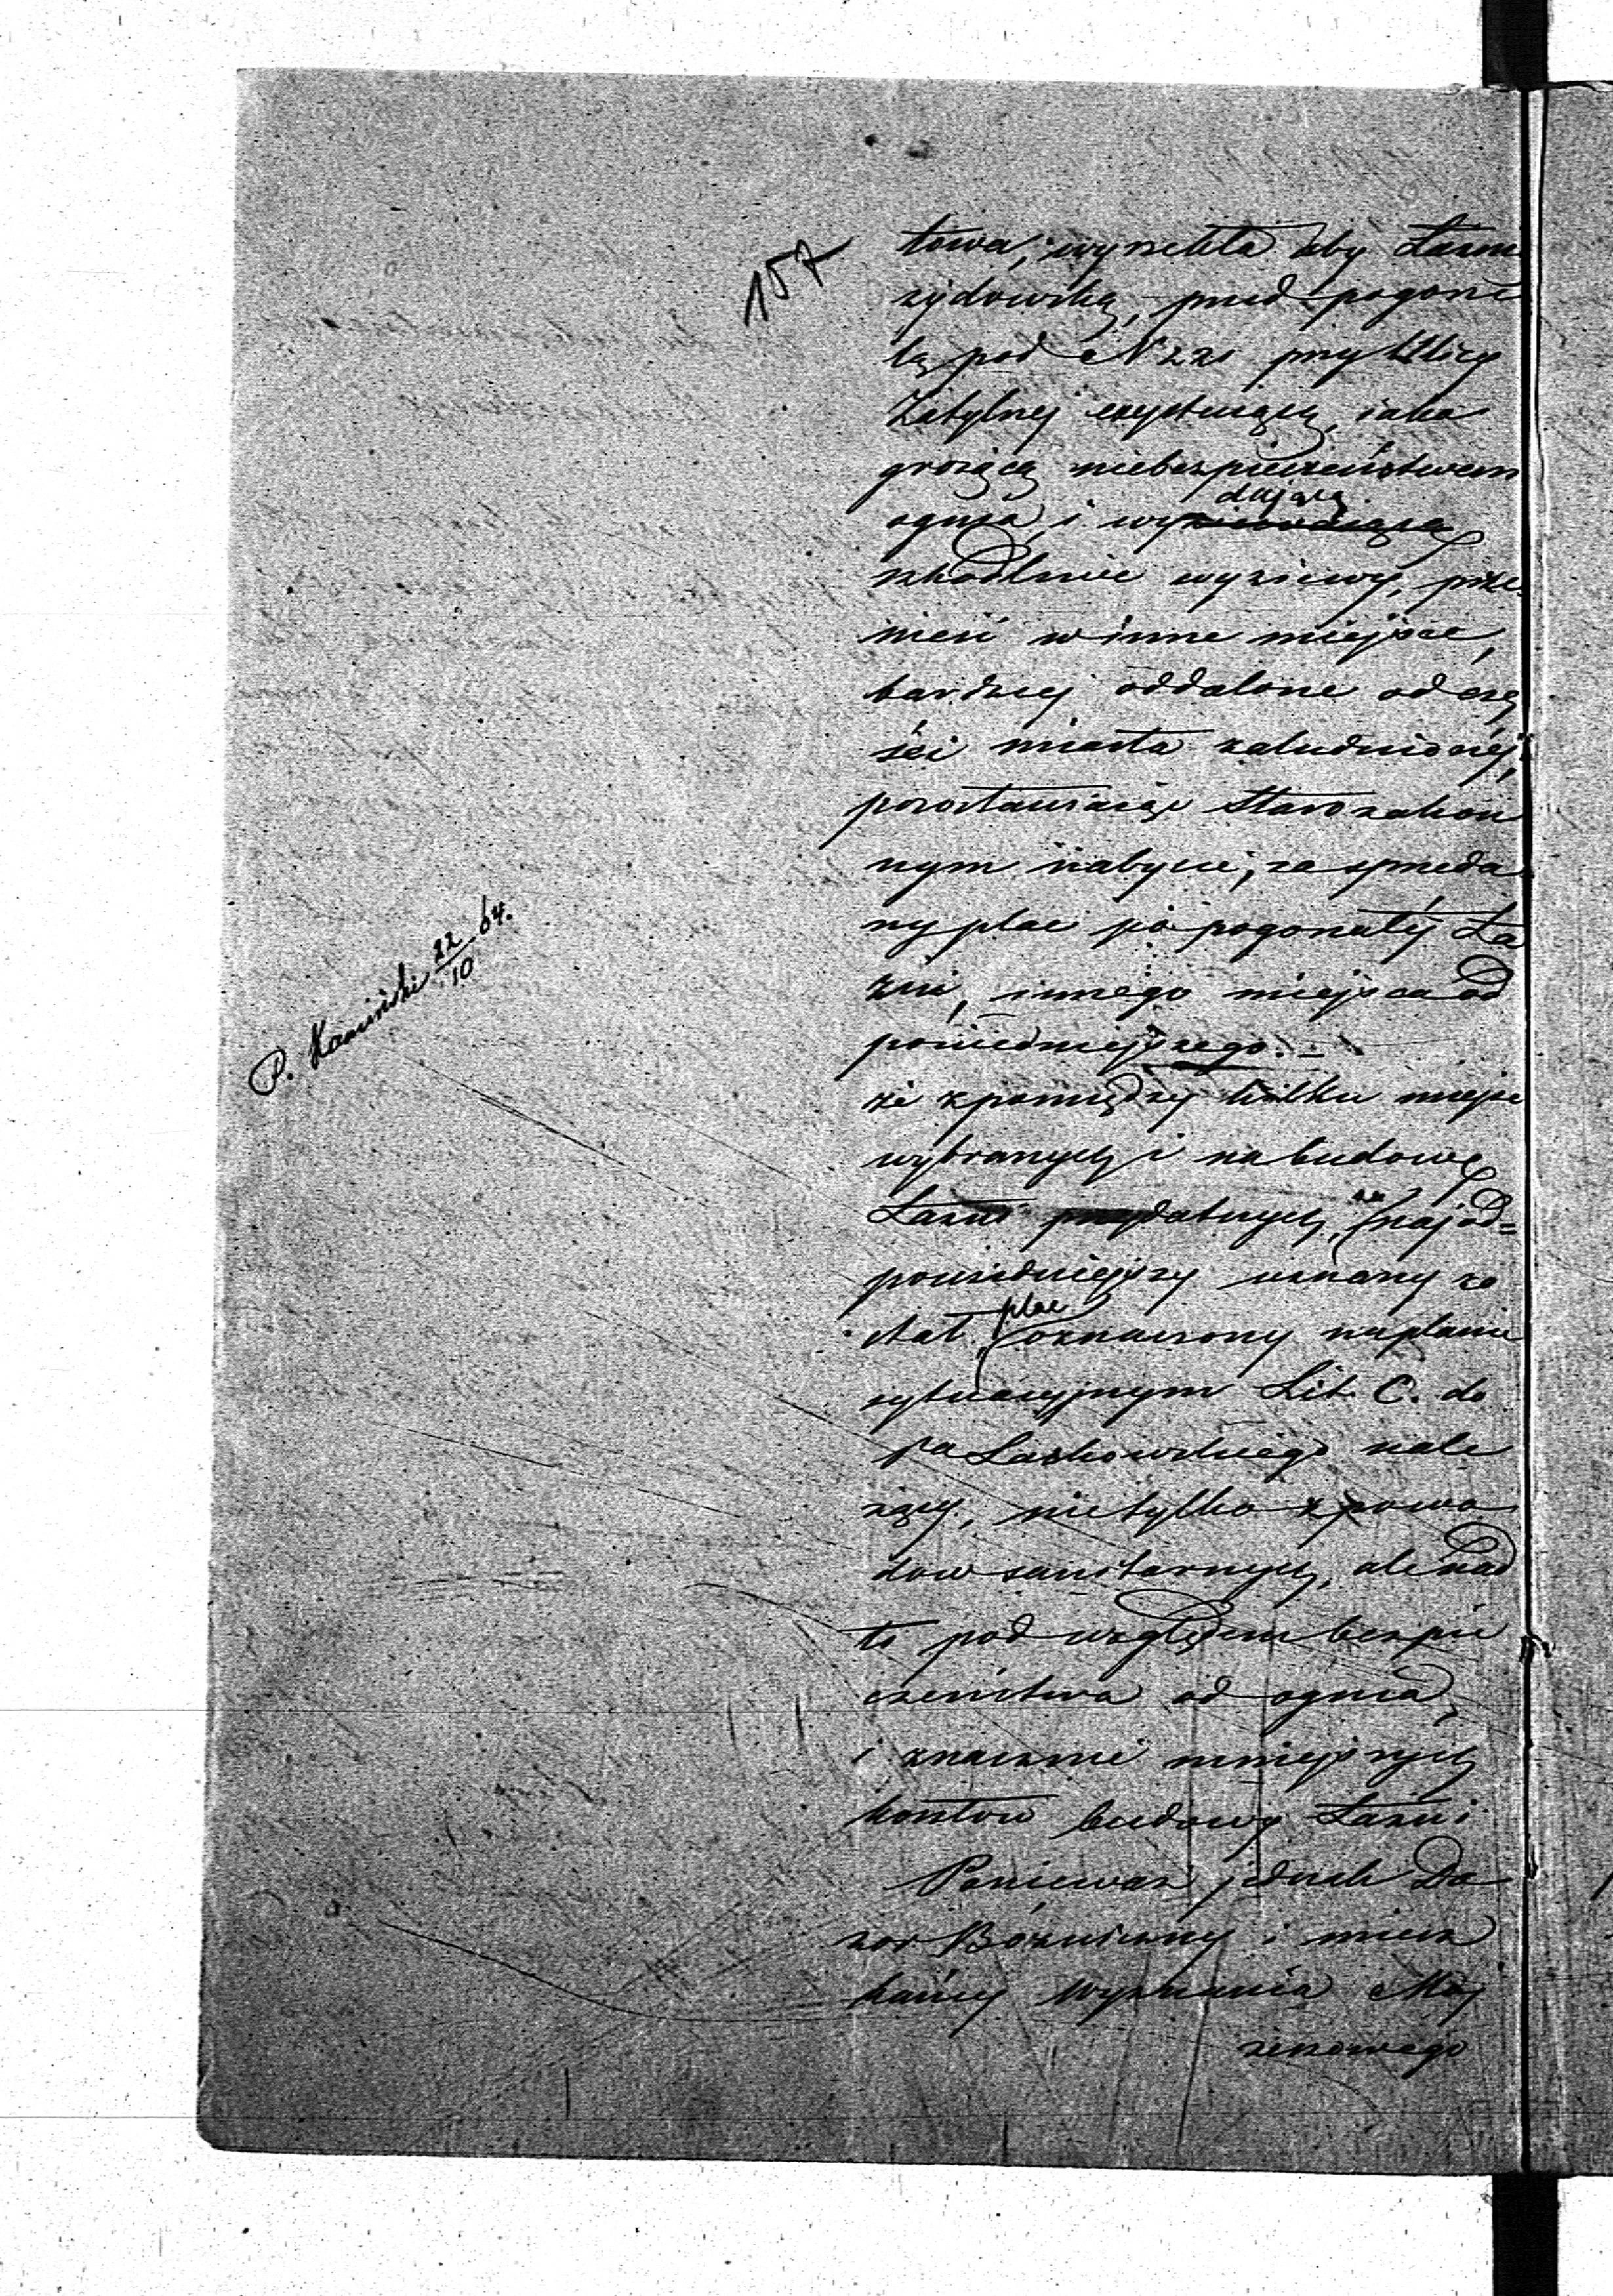 157
towa, wyrzekła aby Łaźni
żydowską, przed pogorze
łą pod N 221 przy Ulicy
Zatylnej exystuiącą, iako
grożącą niebezpieczeństwem
dającą
ognia, i wyziewaiącą
szkodliwe wyziewy, prze
nieść w inne miejsce,
bardziej oddalone od czę
ści miasta zaludnionej,
pozostawiaiąc Starozakon
nym nabycie, za sprzeda
ny plac po pogorzałej Ła
źni, innego miejsca od
powiedniejszego. –
że z pomiędzy kilku miejsc
wybranych i na budowę
Łaźni przydatnych, za najod=
powiedniejszy uznany zo
plac
stał, oznaczony na planie
sytuacyjnym Lit. C. do
pa Laskowskiego nale
żący, nietylko z powo
dow sanitarnych, ale nad
to pod względem bezpie
czeństwa od ognia,
i znacznie mniejszych
kosztow budowy Łaźni
Ponieważ jednak Do
zor Bóżniczny i miesz
kańcy Wyznania Moj
żeszowego
P. Kamiński 22/10 64.